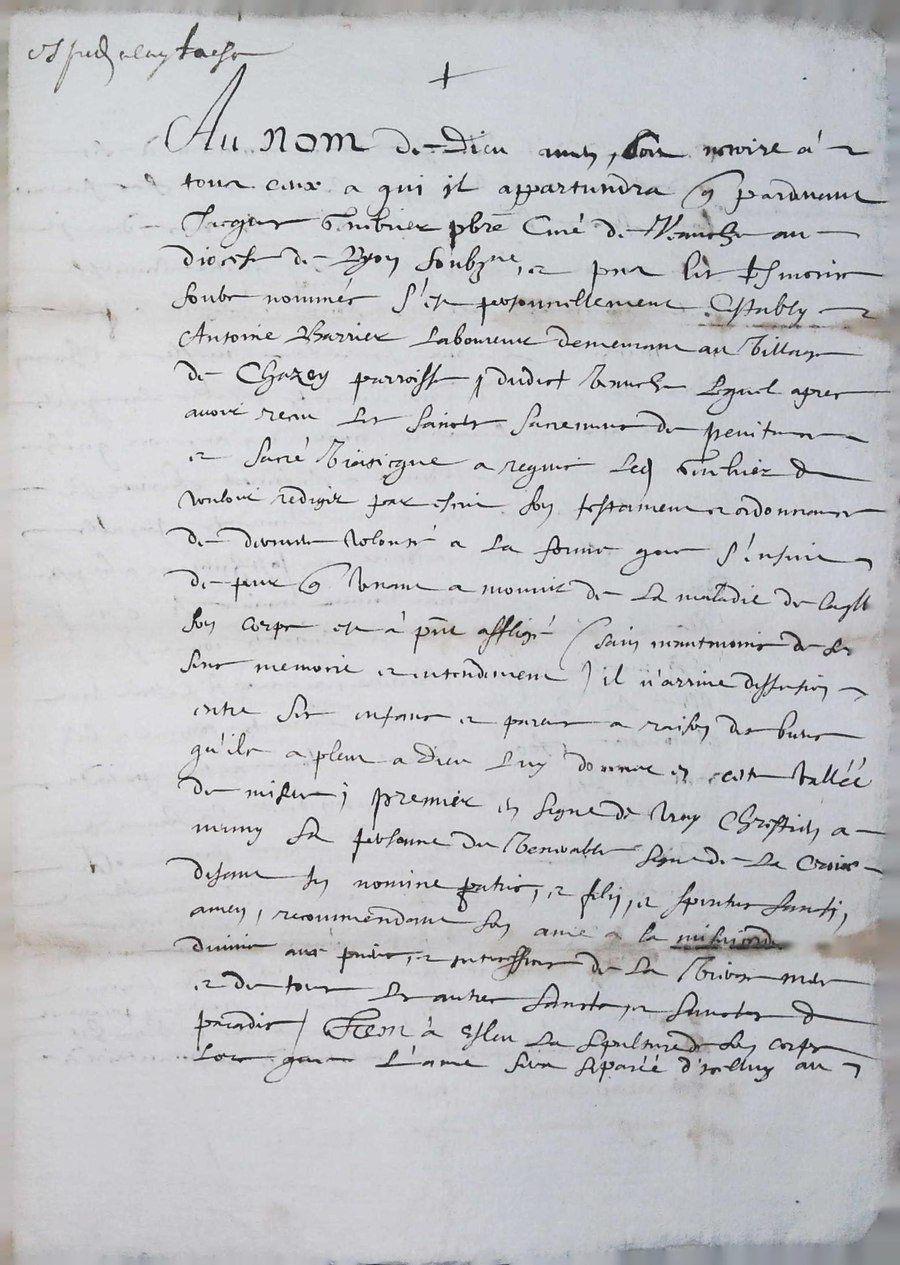 Au nom de Dieu amen, soit notoire à
tous ceux a qui il appartiendra q pardevant
Jacques pbre Curé de Vauche au
diocese de Lyon soubzne, et par les tesmoins
soubs nommés s'est personnellement Estably
Antoine Barrier Laboureur demeurant au Village
de Chazey parroisse dudict Vauche Lequel apres
avoir receu les saincts sacremens de penitence
et sacré Viaticque a requis Led de
vouloir rediger par escrit son testament et ordonnance
de derniere volonté a La forme que s'ensuit
de peur q venant a mourir de La maladie de laqlle
son corps est à pnt affligé (sain neantmoins de ses
sens memoire et entendement) il n'arrive dissention
entre ses enfans et parens a raison des biens
qu'ils a pleu a Dieu Luy donner en cette Vallée
de misere; premier en signe de vray Chrestien a
muny sa personne du Venerable signe de La Croix
disant In nomine patris, et filij, et spiritus sancti,
amen, recommendant son ame a la misericorde
divine aux prieres, et intercessions de La Vierge mere
et de tous Les autres saincts, et sainctes de
paradis / Item à Esleu La sepulture de son corps
Lors que L'ame sera separéé d'icelluy au